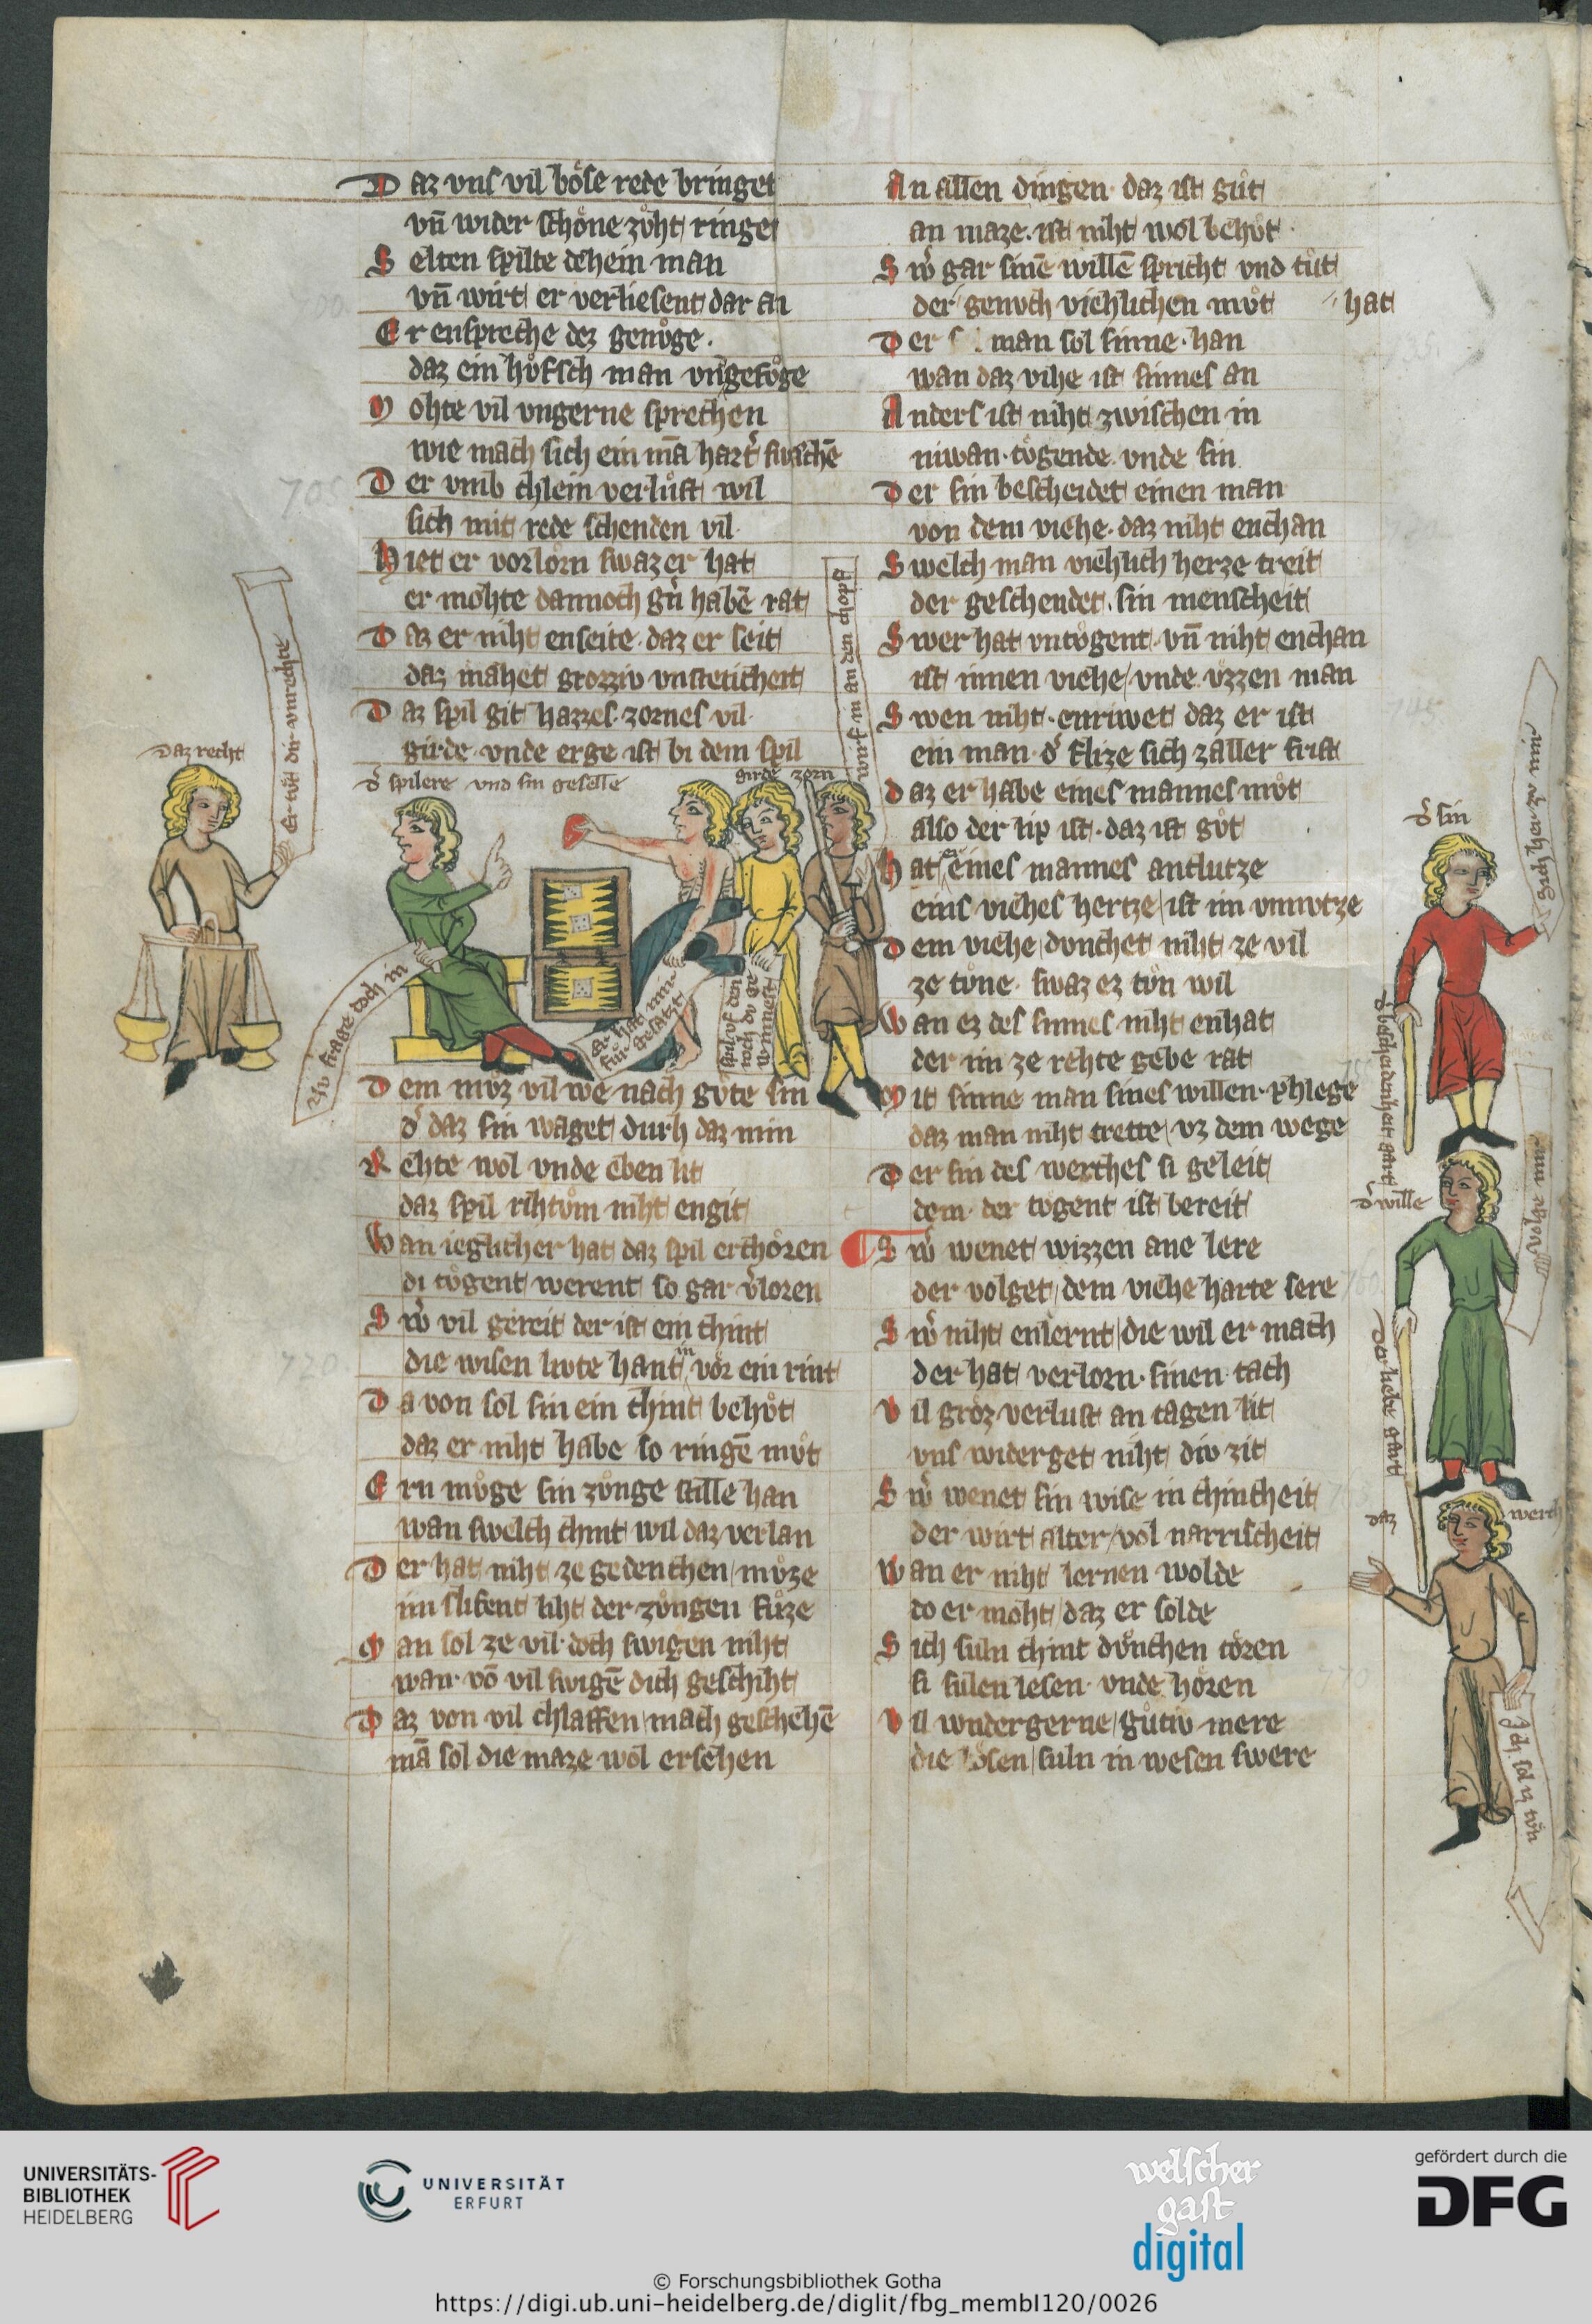 Daz vns vil bôse rede bringet
vn̄ wider schône zůht ringet
Selten spilte dehein man
vn̄ wirt er verliesent dar an
Er enspreche dez genůge.
daz ein hůfsch man vngefůge
Mohte vil vngerne sprechen
wie mach sich ein mā hart̉
Der vmb chlein verlůst wil
sich mit rede schenden vil.
Hiet er vorlorn swaz er hat
er mohte dannoch gůn habē rat
Daz er niht enseite. daz er seit
daz mahet grozziv vnsteticheit
Daz spil git hazzes. zornes vil.
girde vnde erge ist bi dem spil
Daz recht
Er tůt dir vnrechte
d̉ spilere vnd sin geselle
girde zorn
wirf in an den chopf
Zív frage doch in
er hat mir
für gesatzt
spil vf den
roch dv ge
winnest
Dem můz vil we nach gůte sin
d̉ daz sin waget durh daz min
Rechte wol vnde eben lit
daz spil rihtům niht engit
Wan ieglicher hat daz spil erchorn
di tůgent werent so gar v̉loren
Sw̉ vil gereit der ist ein chint
die wisen livte hant in vor ein rint
Da von sol sin ein chint behůt
daz er niht habe so ringē můt
Ern můge sin zůnge stille han
wan swelch chint wil daz verlan
Der hat niht ze gedenchen můze
im slifent liht der zůngen fůze
Man sol ze vil doch swigen niht
wan vō vil swigē dich geschiht
Daz von vil chlaffen mach geschehē
mā sol die maze wol ersehen
An allen dingen. daz ist gůt
an maze. ist niht wol behůt.
Sw̉ gar sinē willē spricht vnd tůt
der genvch viehlichen můt hat
Der man sol sinne. han
wan daz vihe ist sinnes an
Anders ist niht zwischen in
niwan. tůgende. vnde sin
Der sin bescheidet einen man
von dem viehe. daz niht enchan
Swelch man viehlich herze treit
der geschendet. sin menscheit
Swer hat vntůgent. vn̄ niht enchan
ist innen viehe vnde ůzzen man
Swen niht. enriwet daz er ist
ein man. d̉ flize sich zaller frist
Daz er habe eines mannes můt
also der lip ist. daz ist gůt
Hat er eines mannes antlutze
eins viehes hertze ist im vnnvtze
Dem viehe dvnchet niht ze vil
ze tůne. swaz ez tůn wil
Wan ez des sinnes niht enhat
der im ze rehte gebe rat
Mit sinne man sines willen. phlege
daz man niht trette vz dem wege
Der sin des werches si geleit
dem. der tůgent ist bereit
Sw̉ wenet wizzen ane lere
der volget dem viehe harte sere
Sw̉ niht enlernt die wil er mach
der hat verlorn. sinen tach
Vil groz verlust an tagen lit
vns widerget niht div zit
Sw̉ wenet sin wise in chintheit
der wirt alter vol narrischeit
Wan er niht lernen wolde
do er moht daz er solde
Sich suln chint dvnchen toren
si sulen lesen vnde hôren
Vil wndergerne gůtiv mere
die bôsen suln in wesen swere
d̉ sin
sich her ze mir
d̉ bescheidenheit gart
d̉ wille
volge mir
der liebe gart
daz werch
Jch sol iz tůn
UNIVERSITÄTS-
BIBLIOTHEK
HEIDELBERG
UNIVERSITÄT
ERFURT
welscher
gast
digital
gefördert durch die
DFG
© Forschungsbibliothek Gotha
https://digi.ub.uni-heidelberg.de/diglit/fbg_membI120/0026